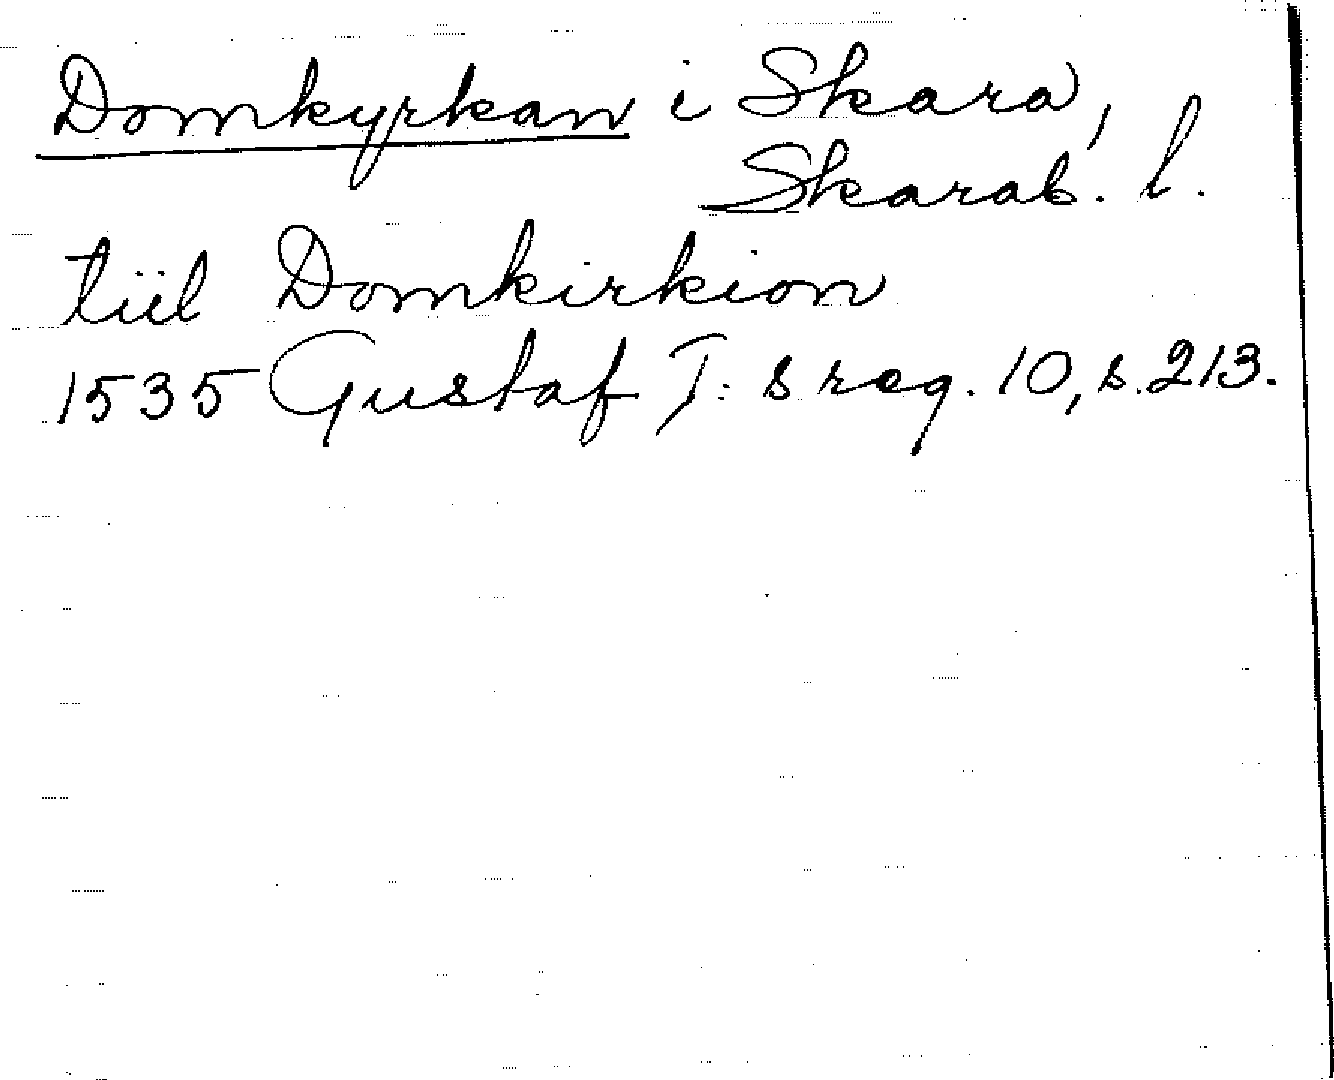 Domkyrkan i Skara,
Skarab. l.
tiil Domkirkion
1535 Gustaf I:s reg. 10, s. 213.